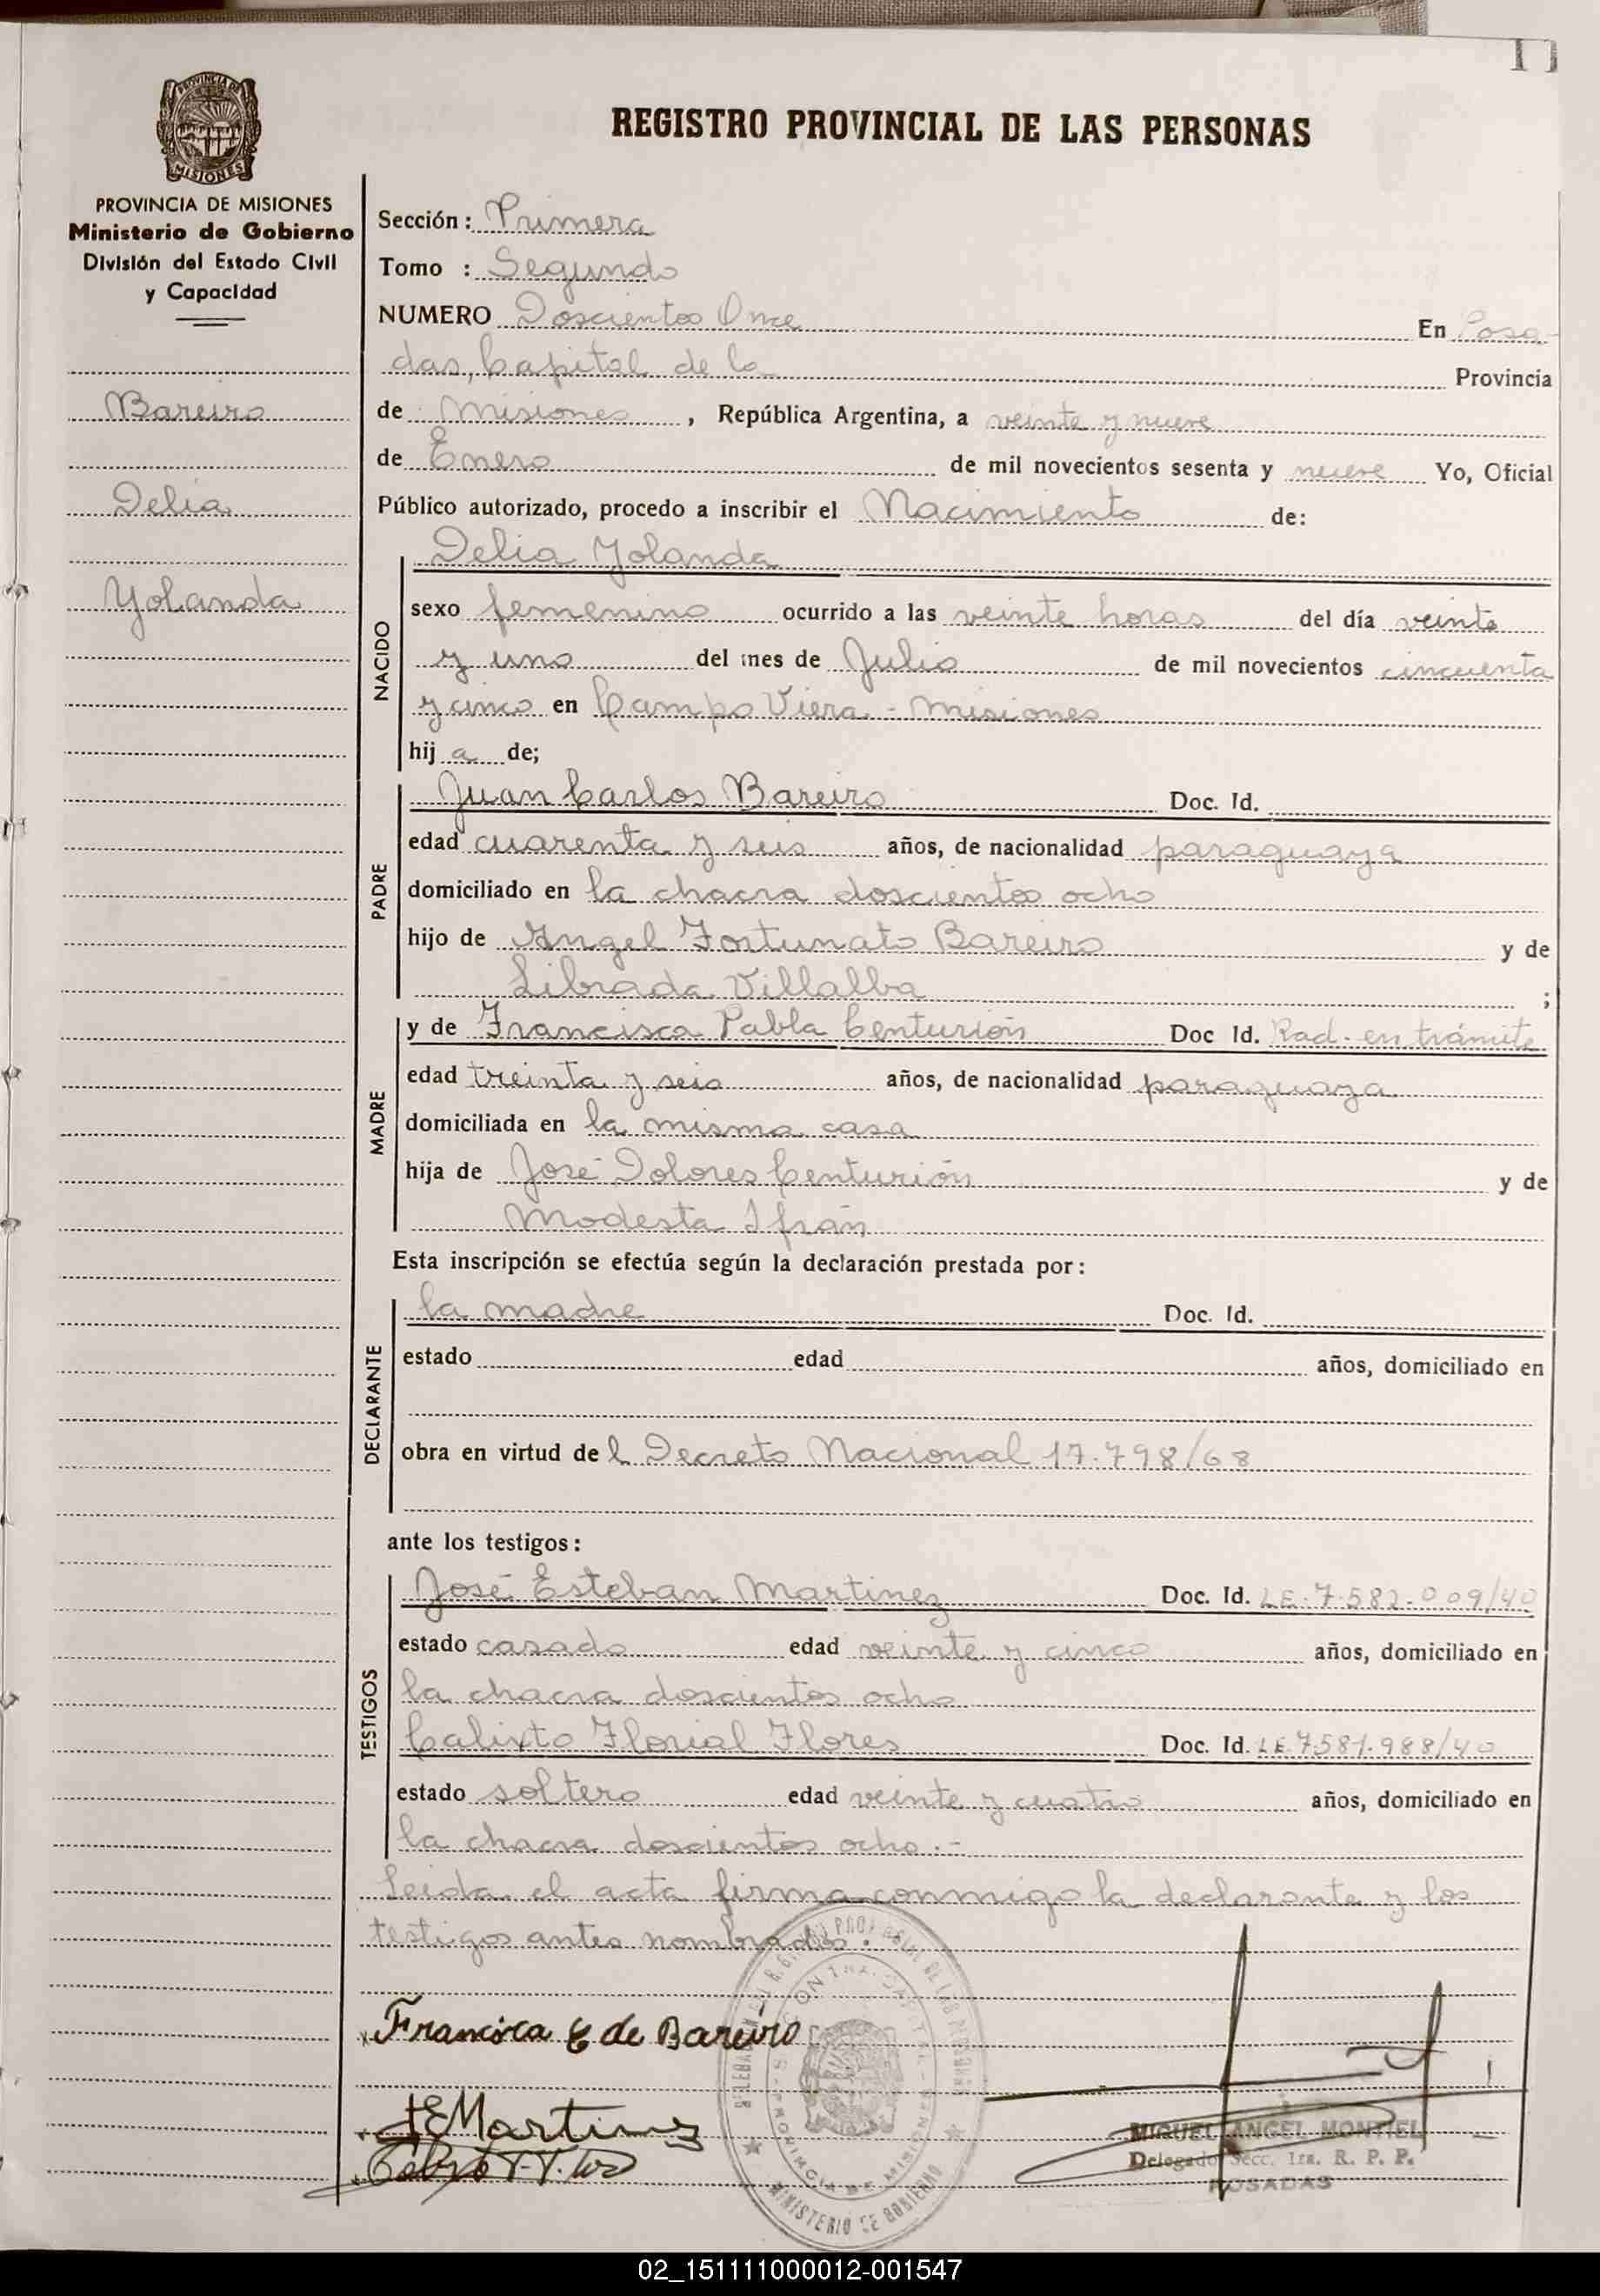 REGISTRO PROVINCIAL DE LAS PERSONAS
PROVINCIA DE MISIONES
Ministerio de Gobierno
División del Estado Civil
y Capacidad
Bareiro
Delia
Yolanda
Sección: Primera
Tomo : Segundo
NUMERO Doscientos Once En Posa-
das, Capital de la Provincia
de Misiones, República Argentina, a veinte y nueve
de Enero de mil novecientos sesenta y nueve Yo, Oficial
Público autorizado, procedo a inscribir el Nacimiento de:
NACIDO
Delia Yolanda
sexo femenino ocurrido a las veinte horas del día veinte
y uno del mes de Julio de mil novecientos cincuenta
y cinco en Campo Viera - Misiones
hij a de;
PADRE
Juan Carlos Bareiro Doc. Id.
edad cuarenta y seis años, de nacionalidad paraguaya
domiciliado en la chacra doscientos ocho
hijo de Angel Fortunato Bareiro y de
Librada Villalba ;
MADRE
y de Francisca Pabla Centurión Doc Id. Rad. en trámite
edad treinta y seis años, de nacionalidad paraguaya
domiciliada en la misma casa
hija de José Dolores Centurión y de
Modesta Ifrán
Esta inscripción se efectúa según la declaración prestada por:
DECLARANTE
la madre Doc. Id.
estado edad años, domiciliado en
obra en virtud de l Decreto Nacional 17.798/68
ante los testigos:
TESTIGOS
José Esteban Martinez Doc. Id. LE.7.582.009/40
estado casado edad veinte y cinco años, domiciliado en
la chacra doscientos ocho
Calixto Florial Flores Doc. Id. LE.7581.988/40
estado soltero edad veinte y cuatro años, domiciliado en
la chacra doscientos ocho.-
Leida el acta firma conmigo la declarante y los
testigos antes nombrados.
Francisca C de Bareiro
JEMartinez
MIGUEL ANGEL MONTIEL
Delegado Secc. 1ra. R. P. P.
POSADAS
MINISTERIO DE GOBIERNO
PROVINCIA DE MISIONES
02_151111000012-001547